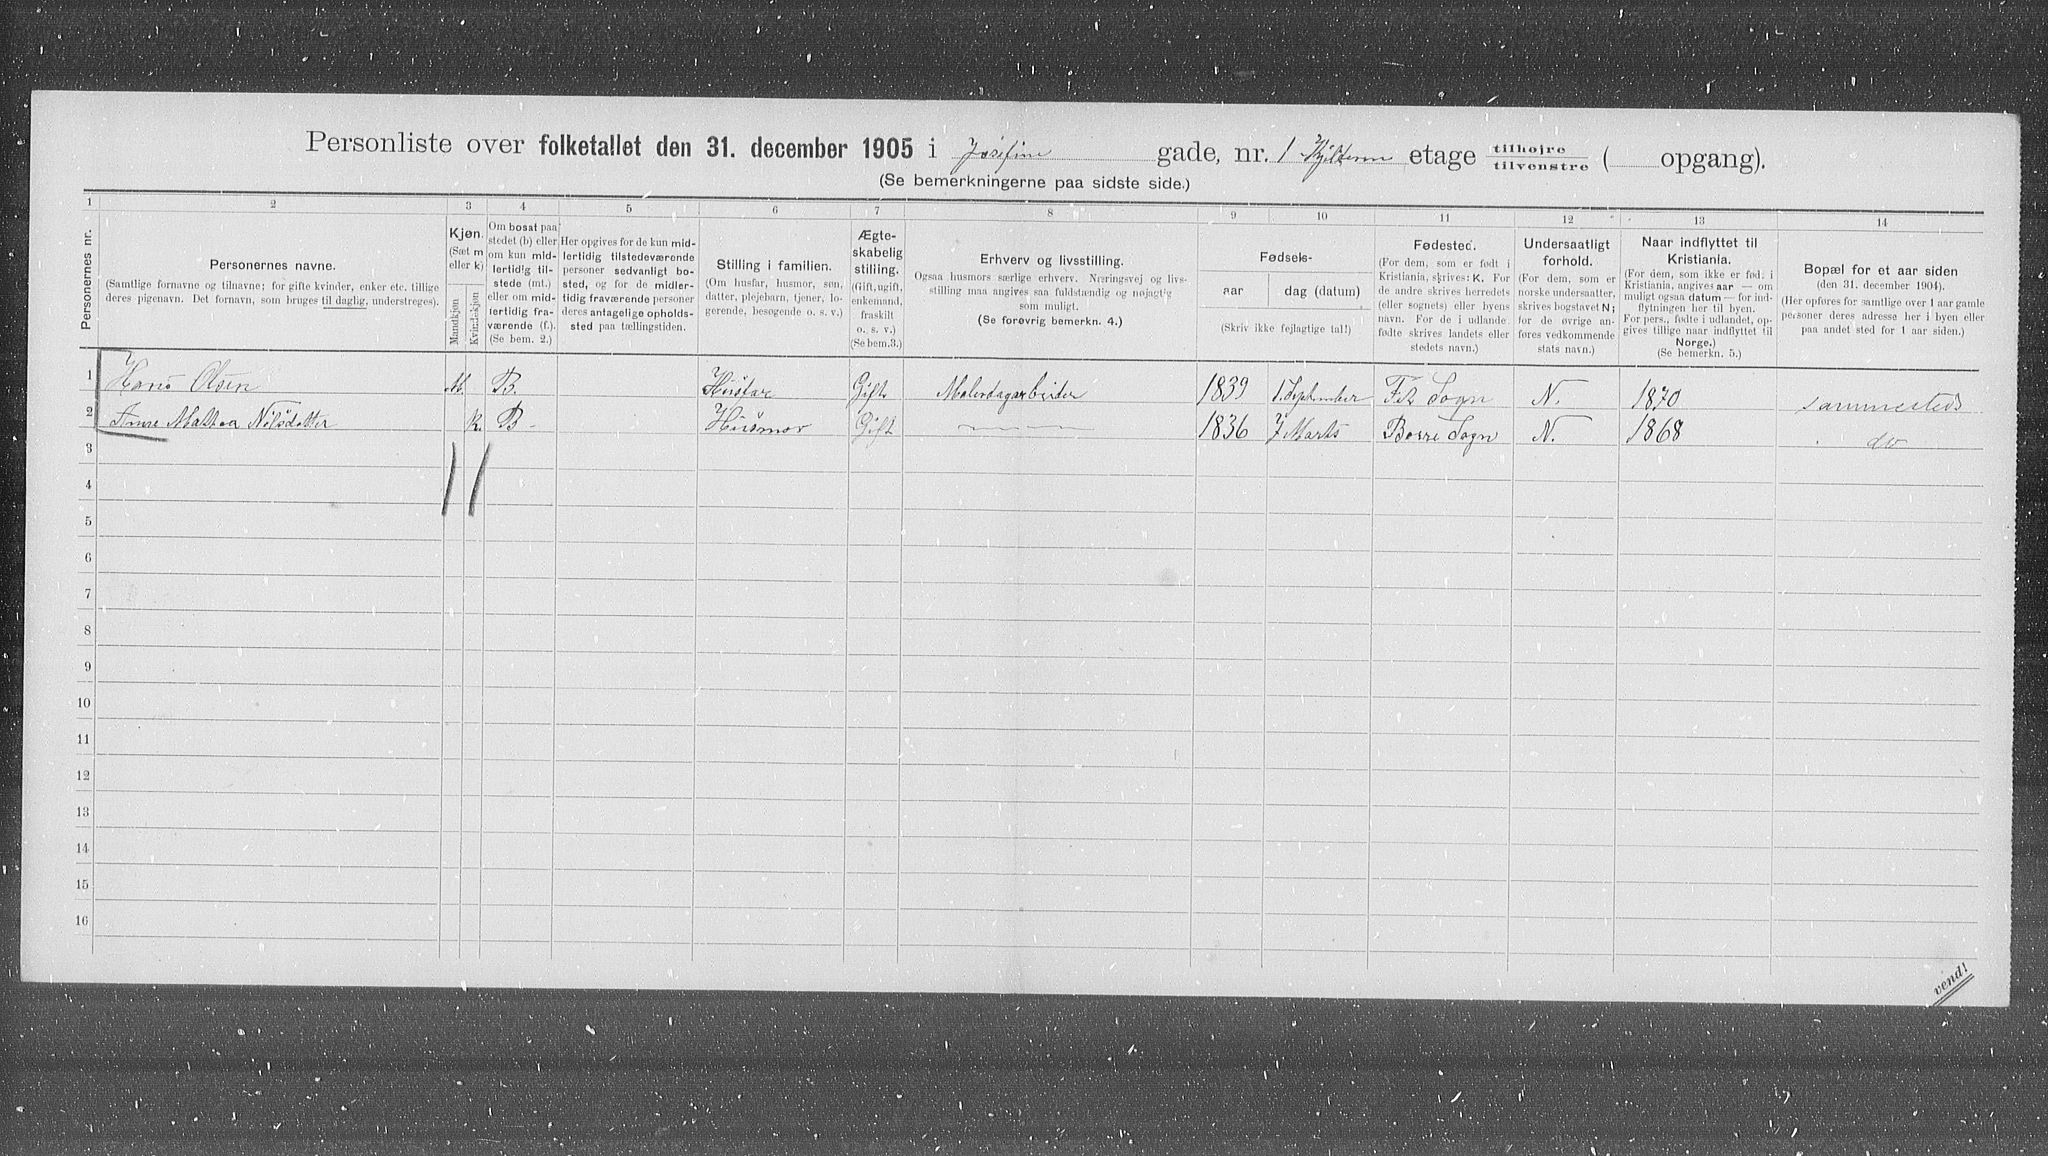 Personliste over folketallet den 31. december 1905 i Josefine gade, nr. 1 Kjelderen etage tilhøjre tilvenstre ( opgang).
(Se bemerkningerne paa sidste side.)
1 2 3 4 5 6 7 8 9 10 11 12 13 14
Personernes nr.
Personernes navne.
(Samtlige fornavne og tilnavne; for gifte kvinder, enker etc. tillige
deres pigenavn. Det fornavn, som bruges til daglig, understreges).
Kjøn.
(Sæt m
eller k)
Mandkjøn
Kvindekjøn
Om bosat paa
stedet (b) eller
om kun mid-
lertidig til-
stede (mt.)
eller om mid-
lertidig fra-
værende (f.).
(Se bem. 2.)
Her opgives for de kun mid-
lertidig tilstedeværende
personer sedvanligt bo-
sted, og for de midler-
tidig fraværende personer
deres antagelige opholds-
sted paa tællingstiden.
Stilling i familien.
(Om husfar, husmor, søn,
datter, plejebarn, tjener, lo-
gerende, besøgende o. s. v.)
Ægte-
skabelig
stilling.
(Gift, ugift,
enkemand,
fraskilt
o. s. v.)
(Se bem.3.)
Erhverv og livsstilling.
Ogsaa husmors særlige erhverv. Næringsvej og livs-
stilling maa angives saa fuldstændig og nøjagtig
som muligt.
(Se forøvrig bemerkn. 4.)
Fødsels-
aar
dag (datum)
(Skriv ikke fejlagtige tal!)
Fødested.
(For dem, som er født i
Kristiania, skrives: K. For
de andre skrives herredets
(eller sognets) eller byens
navn. For de i udlande
fødte skrives landets eller
stedets navn.)
Undersaatligt
forhold.
(For dem, som er
norske undersaatter,
skrives bogstavet N;
for de øvrige an-
føres vedkommende
stats navn.)
Naar indflyttet til
Kristiania.
(For dem, som ikke er fød. i
Kristiania, angives aar — om
muligt ogsaa datum — for ind-
flytningen her til byen.
For pers., fødte i udlandet, op-
gives tillige naar indflyttet til
Norge.)
(Se bemerkn. 5.)
Bopæl for et aar siden
(den 31. december 1904).
(Her opføres for samtlige over 1 aar gamle
personer deres adresse her i byen eller
paa andet sted for 1 aar siden.)
1 Hans Olsen M. B. Husfar Gift Malerdagarbeider 1839 1. September Fet Sogn N. 1870 sammesteds
2 Anne Mattea Nilsdatter K. B - Husmor Gift — — — 1836 7 Marts Borre Sogn N. 1868 do
3
4
5
6
7
8
9
10
11
12
13
14
15
16
vend!